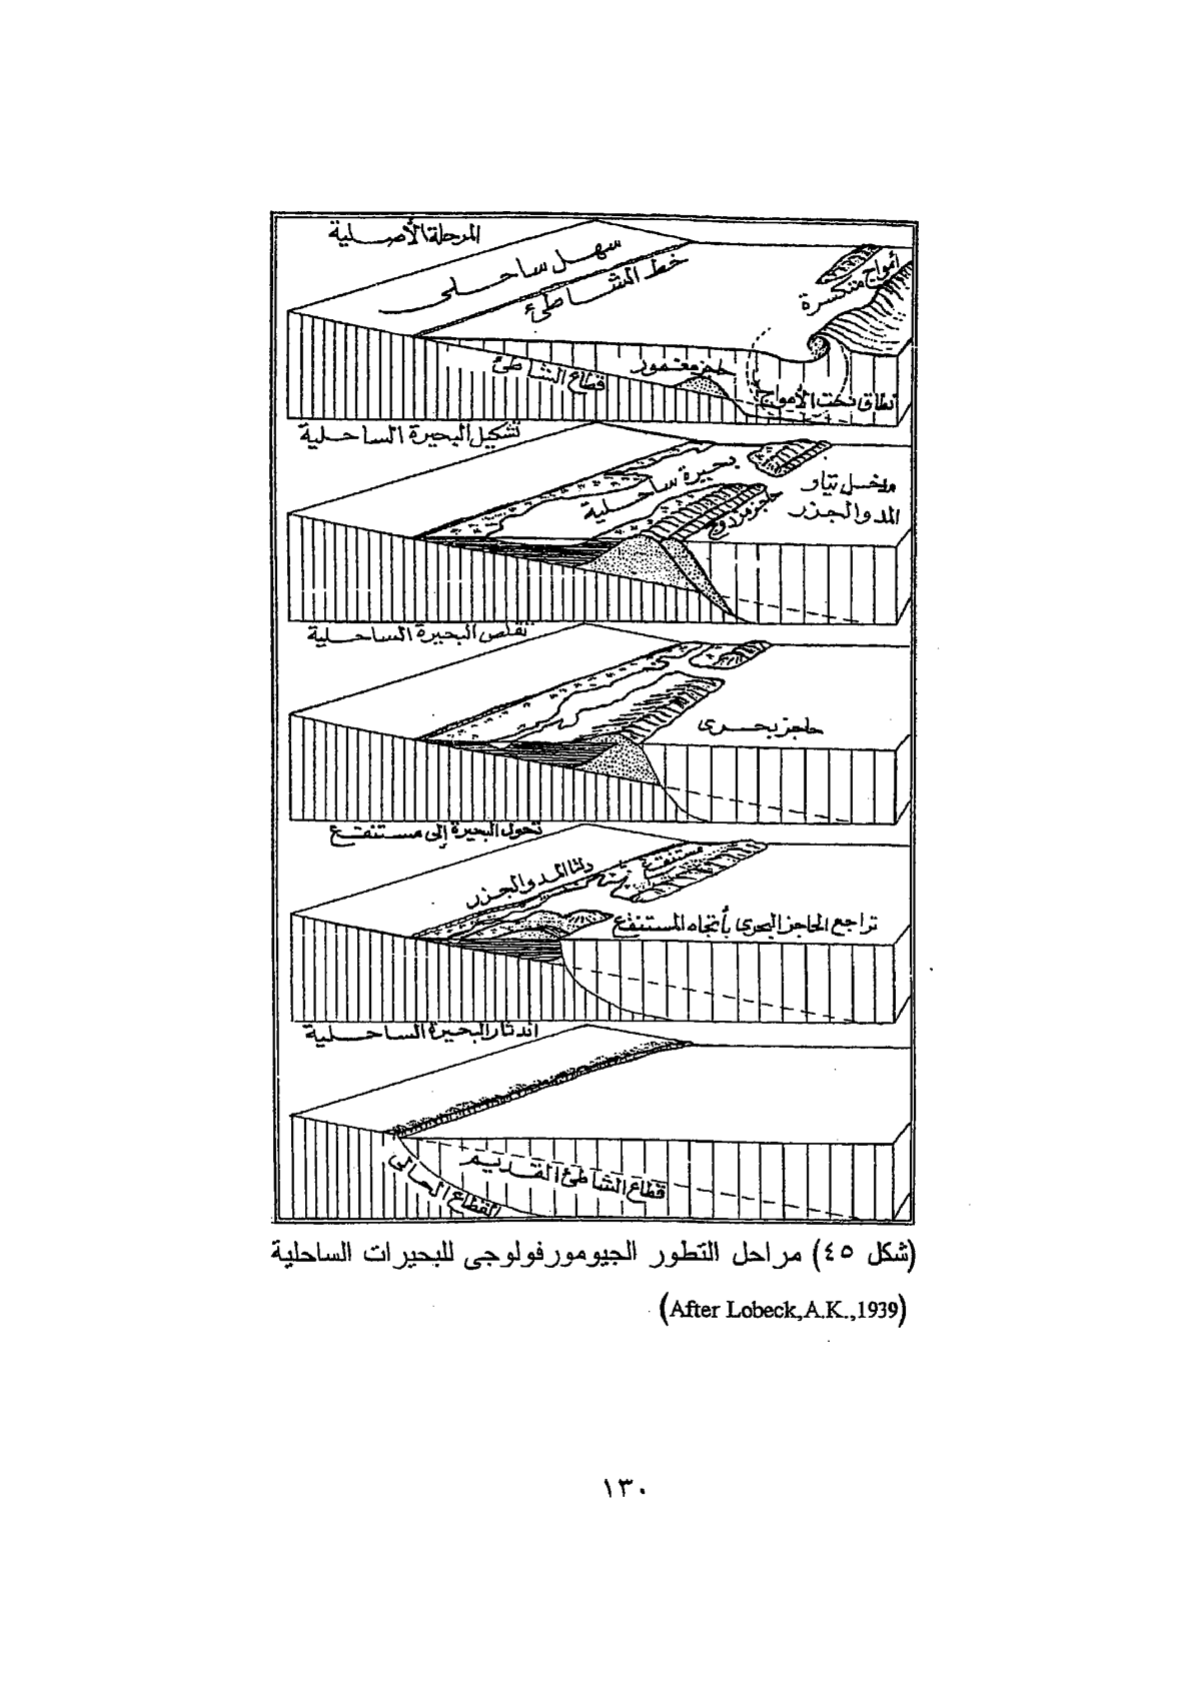 المرحلة الأصلية
سهل ساحلى
خط الشاطئ
أمواج منكسرة
حاجز مغمور
قطاع الشاطئ
نطاق نحت الأمواج
تشكيل البحيرة الساحلية
بحيرة ساحلية
مدخل تيار
المد والجزر
حاجز مزدوج
تقلص البحيرة الساحلية
حاجز بحرى
تحول البحيرة إلى مستنقع
مستنقع
دلتا المد والجزر
تراجع الحاجز البحرى بأتجاه المستنقع
اندثار البحيرة الساحلية
قطاع الشاطئ القديم
القطاع الحالى
(شكل ٤٥) مراحل التطور الجيومورفولوجى للبحيرات الساحلية
(After Lobeck,A.K.,1939)
١٣٠